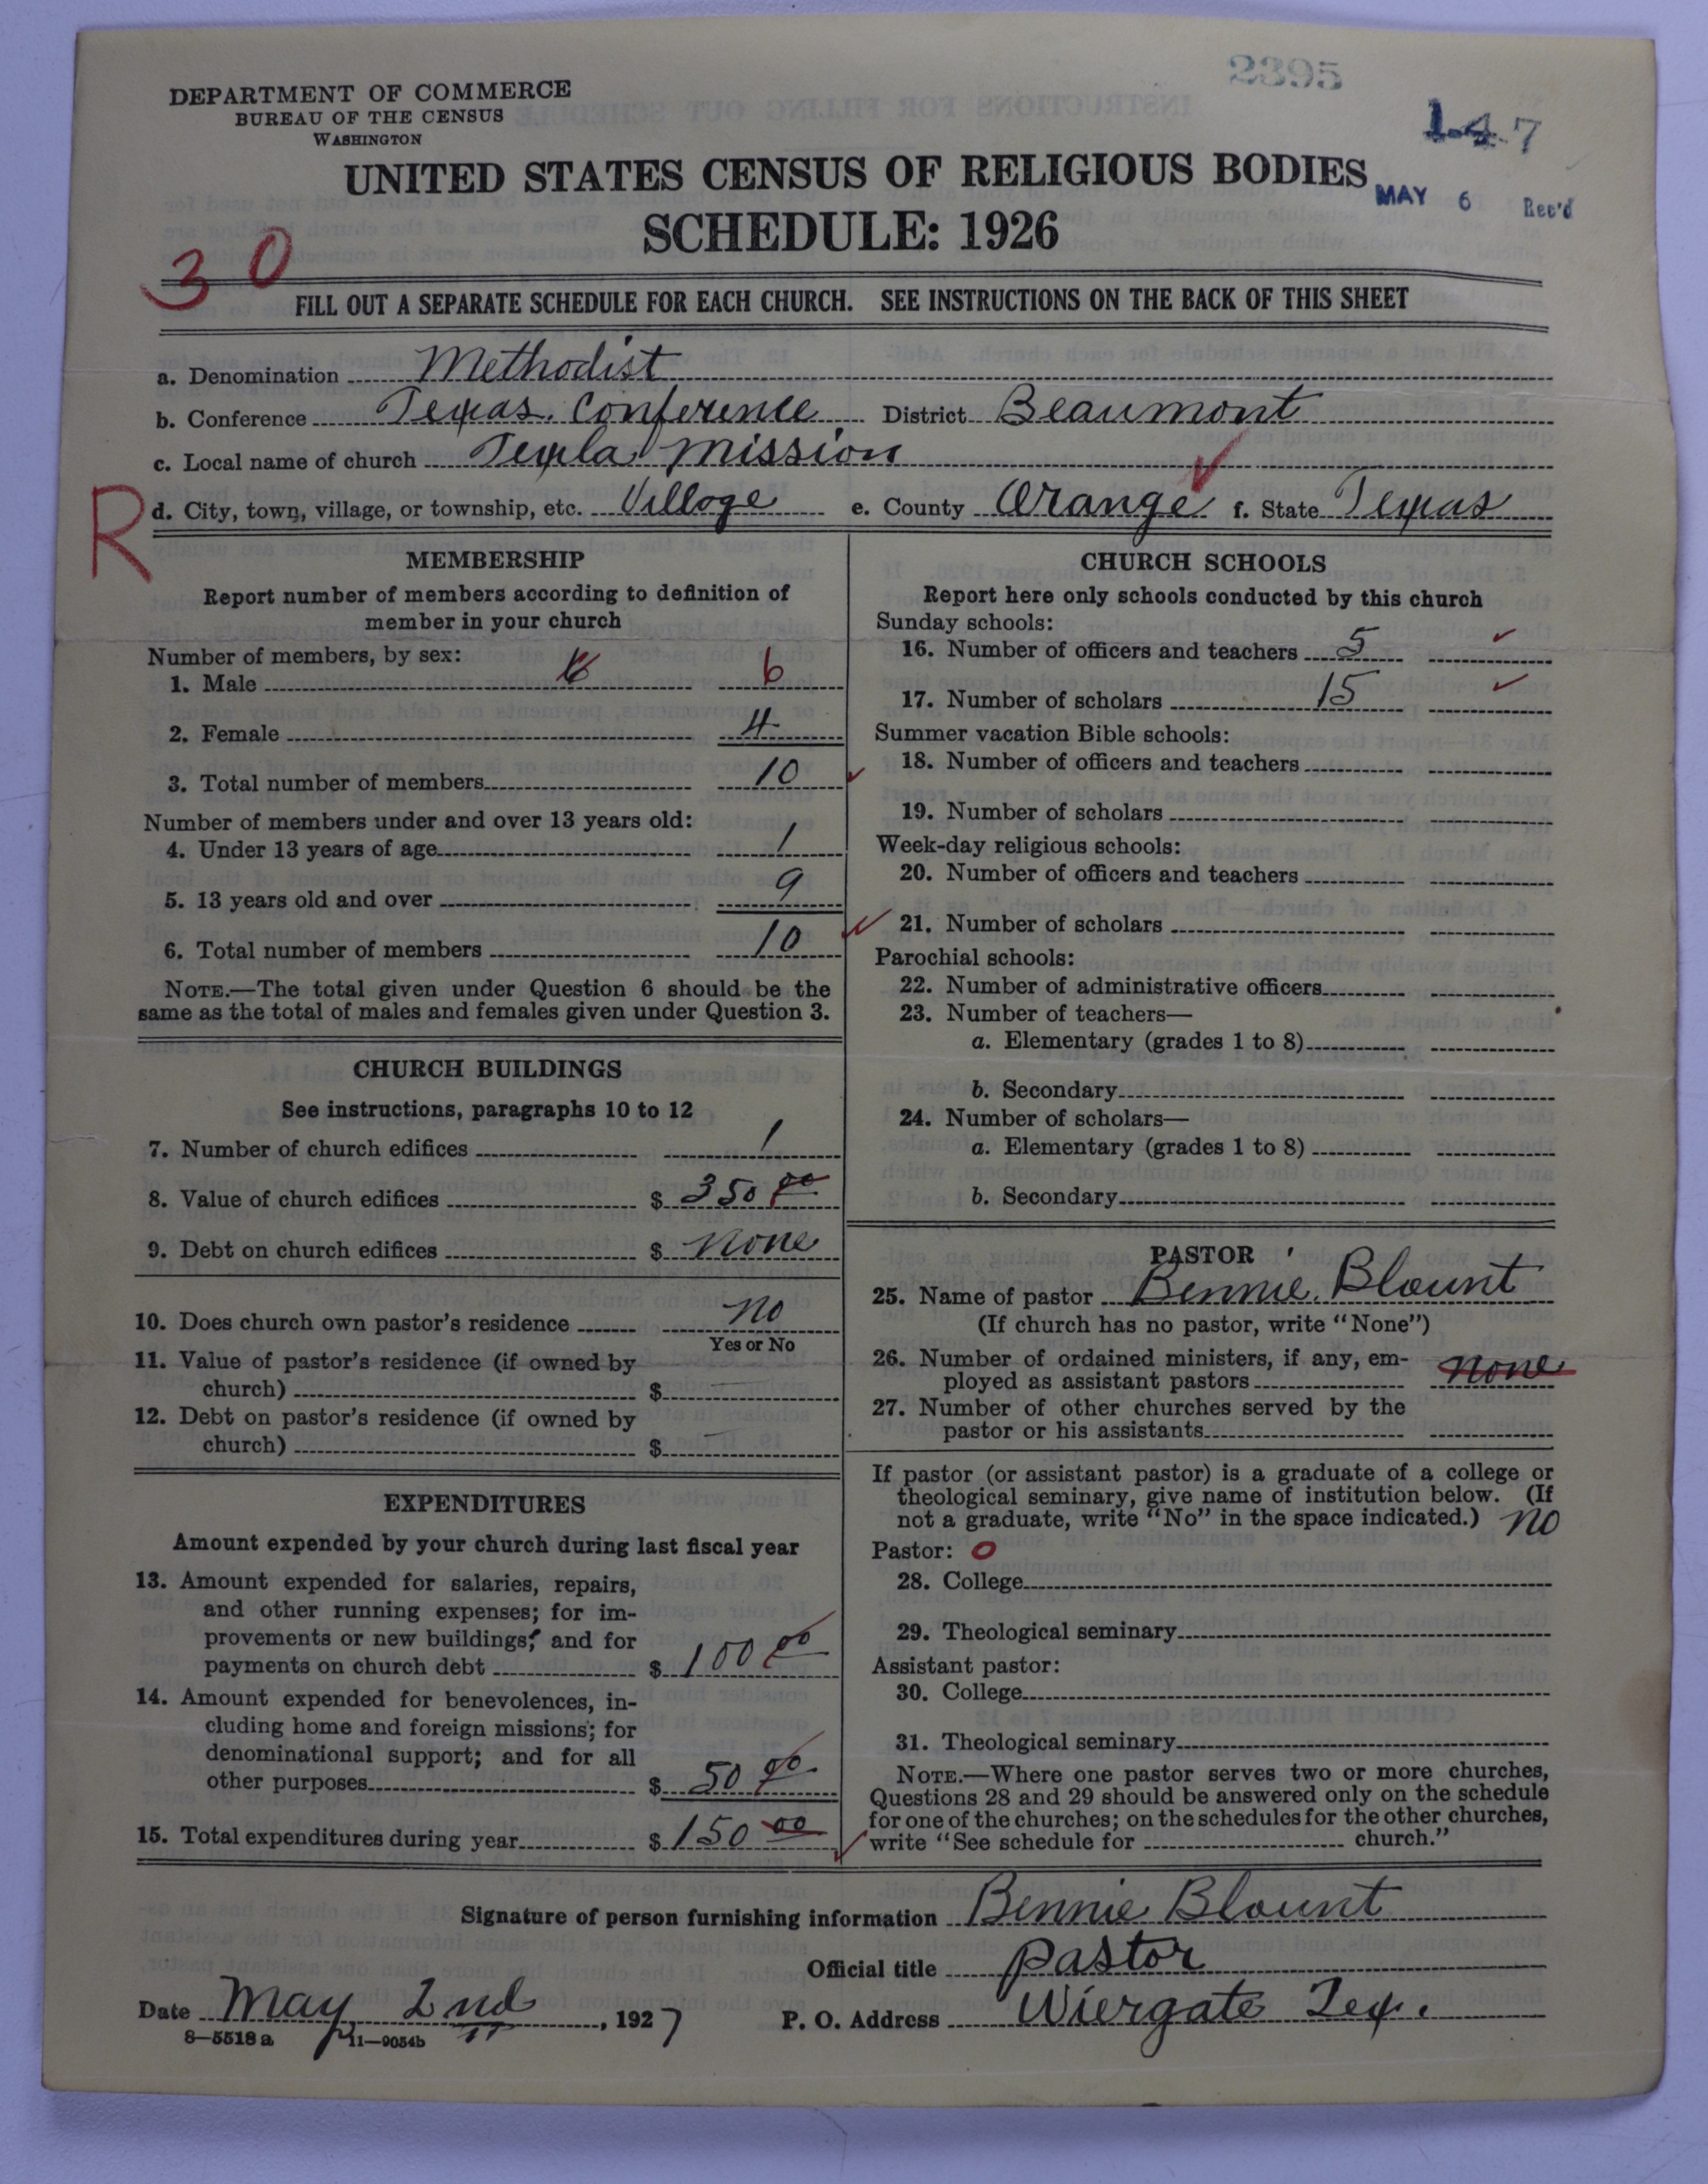 2395
DEPARTMENT OF COMMERCE
BUREAU OF THE CENSUS
WASHINGTON
1-4-7
UNITED STATES CENSUS OF RELIGIOUS BODIES
MAY 6 Rec'd
SCHEDULE: 1926
30
FILL OUT A SEPARATE SCHEDULE FOR EACH CHURCH. SEE INSTRUCTIONS ON THE BACK OF THIS SHEET
a. Denomination Methodist
b. Conference Texas. Conference District Beaumont
c. Local name of church Texla Mission
R
d. City, town, village, or township, etc. Villoge e. County Orange f. State Texas
MEMBERSHIP
Report number of members according to definition of
member in your church
Number of members, by sex:
1. Male 6 6
2. Female 4
3. Total number of members 10
Number of members under and over 13 years old:
4. Under 13 years of age 1
5. 13 years old and over 9
6. Total number of members 10
NOTE.—The total given under Question 6 should be the
same as the total of males and females given under Question 3.
CHURCH BUILDINGS
See instructions, paragraphs 10 to 12
7. Number of church edifices 1
8. Value of church edifices $ 350 00
9. Debt on church edifices $ None
10. Does church own pastor's residence No
Yes or No
11. Value of pastor's residence (if owned by
church) $
12. Debt on pastor's residence (if owned by
church) $
EXPENDITURES
Amount expended by your church during last fiscal year
13. Amount expended for salaries, repairs,
and other running expenses; for im-
provements or new buildings; and for
payments on church debt $ 100 00
14. Amount expended for benevolences, in-
cluding home and foreign missions; for
denominational support; and for all
other purposes $ 50 00
15. Total expenditures during year $ 150 00
CHURCH SCHOOLS
Report here only schools conducted by this church
Sunday schools:
16. Number of officers and teachers 5
17. Number of scholars 15
Summer vacation Bible schools:
18. Number of officers and teachers
19. Number of scholars
Week-day religious schools:
20. Number of officers and teachers
21. Number of scholars
Parochial schools:
22. Number of administrative officers
23. Number of teachers—
a. Elementary (grades 1 to 8)
b. Secondary
24. Number of scholars—
a. Elementary (grades 1 to 8)
b. Secondary
PASTOR
25. Name of pastor Bennie. Blount
(If church has no pastor, write "None")
26. Number of ordained ministers, if any, em-
ployed as assistant pastors none
27. Number of other churches served by the
pastor or his assistants
If pastor (or assistant pastor) is a graduate of a college or
theological seminary, give name of institution below. (If
not a graduate, write "No" in the space indicated.) No
Pastor: 0
28. College
29. Theological seminary
Assistant pastor:
30. College
31. Theological seminary
NOTE.—Where one pastor serves two or more churches,
Questions 28 and 29 should be answered only on the schedule
for one of the churches; on the schedules for the other churches,
write "See schedule for church."
Signature of person furnishing information Bennie Blount
Official title Pastor
Date May 2nd, 1927 P. O. Address Wiergate Tex.
8—5518 a 11—9054b